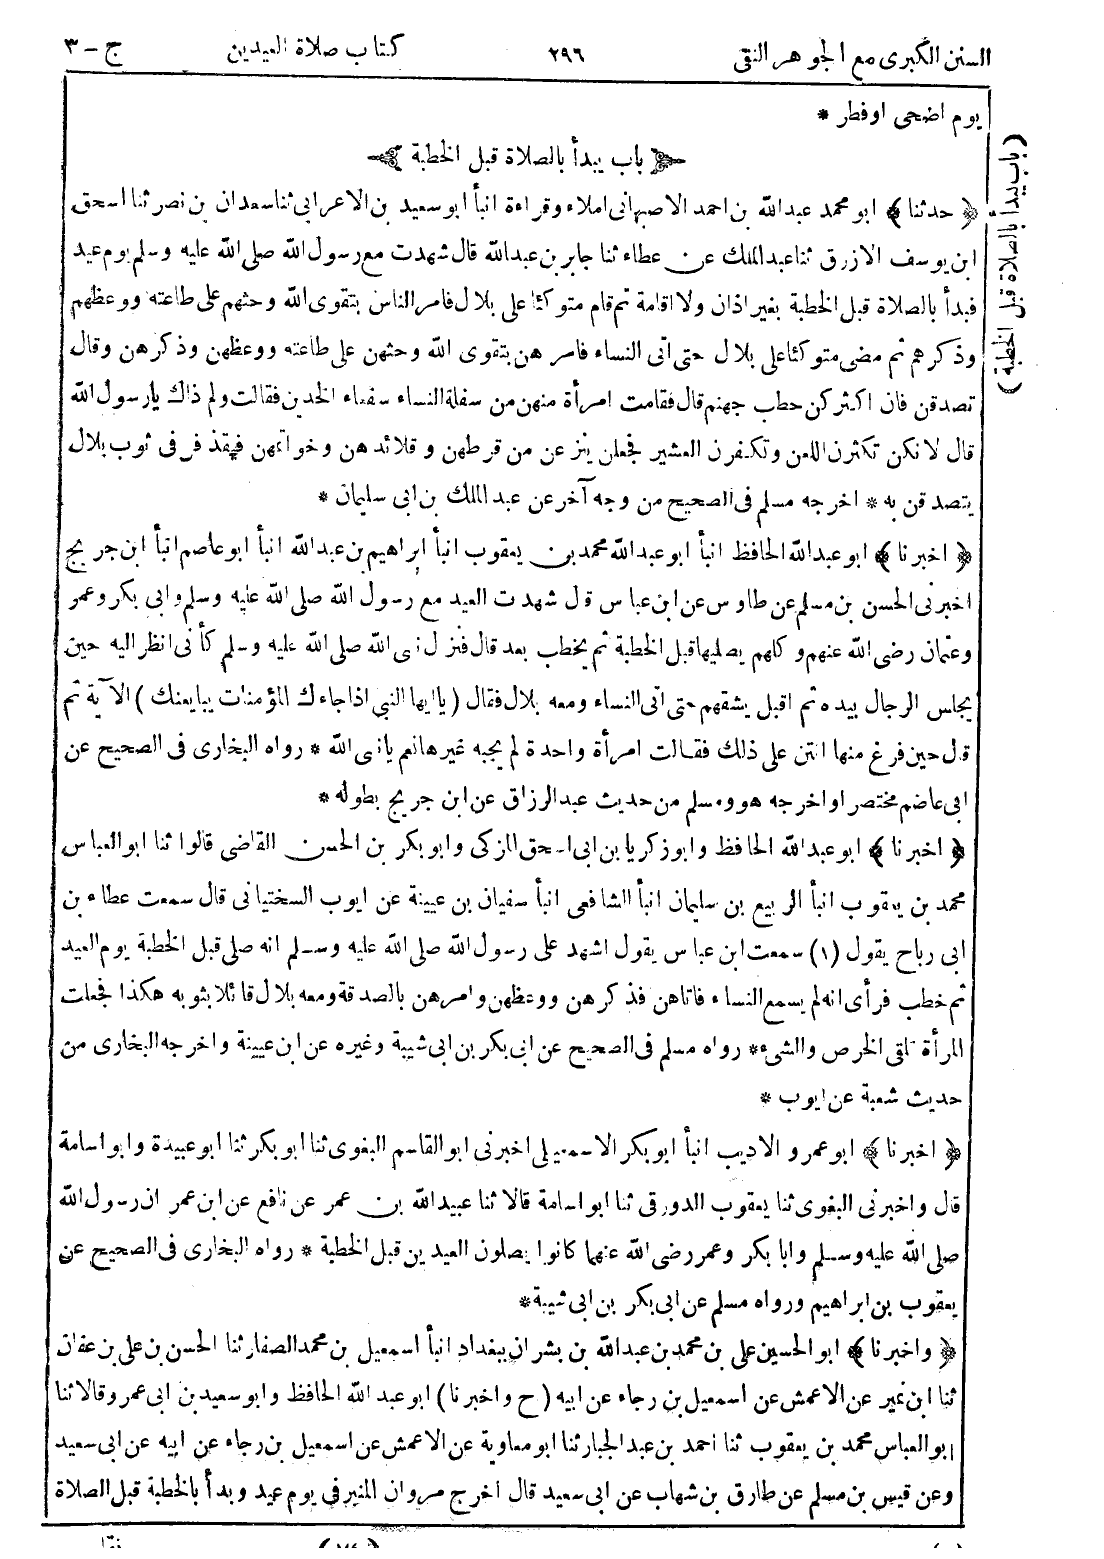 السنن الكبرى مع الجوهر النقى ٢٩٦ كتاب صلاة العيدين ج - ٣
يوم اضحى اوفطر *
باب يبدأ بالصلاة قبل الخطبة
(باب يبدأ بالصلاة قبل الخطبة)
﴿ حدثنا ﴾ ابو محمد عبدالله بن احمد الاصبهانى املاء وقراءة انبأ ابو سعيد بن الاعرابى ثنا سعدان بن نصر ثنا اسحق
ابن يوسف الازرق ثنا عبد الملك عن عطاء ثنا جابر بن عبدالله قال شهدت مع رسول الله صلى الله عليه وسلم يوم عيد
فبدأ بالصلاة قبل الخطبة بغير اذان ولا اقامة ثم قام متوكئا على بلال فامر الناس بتقوى الله وحثهم على طاعته ووعظهم
وذكرهم ثم مضى متوكئا على بلال حتى اتى النساء فامر هن بتقوى الله وحثهن على طاعته ووعظهن وذكر هن وقال
تصدقن فان اكثركن حطب جهنم قال فقامت امرأة منهن من سفلة النساء سفعاء الخدين فقالت ولم ذاك يا رسول الله
قال لانكن تكثرن اللعن وتكفرن العشير فجعلن ينزعن من قرطهن و قلائد هن وخواتمهن فيقذفر فى ثوب بلال
يتصدقن به * اخرجه مسلم فى الصحيح من وجه آخر عن عبد الملك بن ابى سليمان *
﴿ اخبرنا ﴾ ابو عبدالله الحافظ انبأ ابو عبدالله محمد بن يعقوب انبأ ابراهيم بن عبدالله انبأ ابو عاصم انبأ ابن جريج
اخبرنى الحسن بن مسلم عن طاوس عن ابن عباس قل شهدت العيد مع رسول الله صلى الله عليه وسلم وابى بكر وعمر
وعثمان رضى الله عنهم و كلهم يصليها قبل الخطبة ثم يخطب بعد قال فنزل نبى الله صلى الله عليه وسلم كأنى انظر اليه حين
يجلس الرجال بيده ثم اقبل يشقهم حتى اتى النساء ومعه بلال فقال (يا ايها النبي اذا جاءك المؤمنات يبايعنك) الآية ثم
قال حين فرغ منها انتن على ذلك فقالت امرأة واحدة لم يجبه غيرها نعم يا نبى الله * رواه البخارى فى الصحيح عن
ابى عاصم مختصرا واخرجه هوومسلم من حديث عبد الرزاق عن ابن جريج بطوله *
﴿ اخبرنا ﴾ ابو عبدالله الحافظ وابو زكريا بن ابى اسحق المزكى وابو بكر بن الحسن القاضى قالوا ثنا ابو العباس
محمد بن يعقوب انبأ الربيع بن سليمان انبأ الشافعى انبأ سفيان بن عيينة عن ايوب السختيانى قال سمعت عطاء بن
ابى رباح يقول (١) سمعت ابن عباس يقول اشهد على رسول الله صلى الله عليه وسلم انه صلى قبل الخطبة يوم العيد
ثم خطب فرأى انه لم يسمع النساء فاتاهن فذكر هن ووعظهن وامرهن بالصدقة ومعه بلال قائلا بثوبه هكذا فجعلت
المرأة تلقى الخرص والشىء * رواه مسلم فى الصحيح عن ابى بكر بن ابى شيبة وغيره عن ابن عيينة واخرجه البخارى من
حديث شعبة عن ايوب *
﴿ اخبرنا ﴾ ابو عمرو الاديب انبأ ابو بكر الاسمعيلى اخبرنى ابو القاسم البغوى ثنا ابو بكر ثنا ابو عبيدة وابو اسامة
قال واخبرنى البغوى ثنا يعقوب الدورقى ثنا ابو اسامة قالا ثنا عبيد الله بن عمر عن نافع عن ابن عمر ان رسول الله
صلى الله عليه وسلم وابا بكر وعمر رضى الله عنهما كانوا يصلون العيدين قبل الخطبة * رواه البخارى فى الصحيح عن
يعقوب بن ابراهيم ورواه مسلم عن ابى بكر بن ابى شيبة *
﴿ واخبرنا ﴾ ابو الحسين على بن محمد بن عبدالله بن بشران ببغداد انبأ اسمعيل بن محمد الصفار ثنا الحسن بن على بن عفان
ثنا ابن نمير عن الاعمش عن اسمعيل بن رجاء عن ابيه (ح واخبرنا) ابو عبد الله الحافظ وابو سعيد بن ابى عمرو قالا ثنا
ابو العباس محمد بن يعقوب ثنا احمد بن عبد الجبار ثنا ابو معاوية عن الاعمش عن اسمعيل بن رجاء عن ابيه عن ابى سعيد
وعن قيس بن مسلم عن طارق بن شهاب عن ابى سعيد قال اخرج مروان المنبر فى يوم عيد وبدأ بالخطبة قبل الصلاة